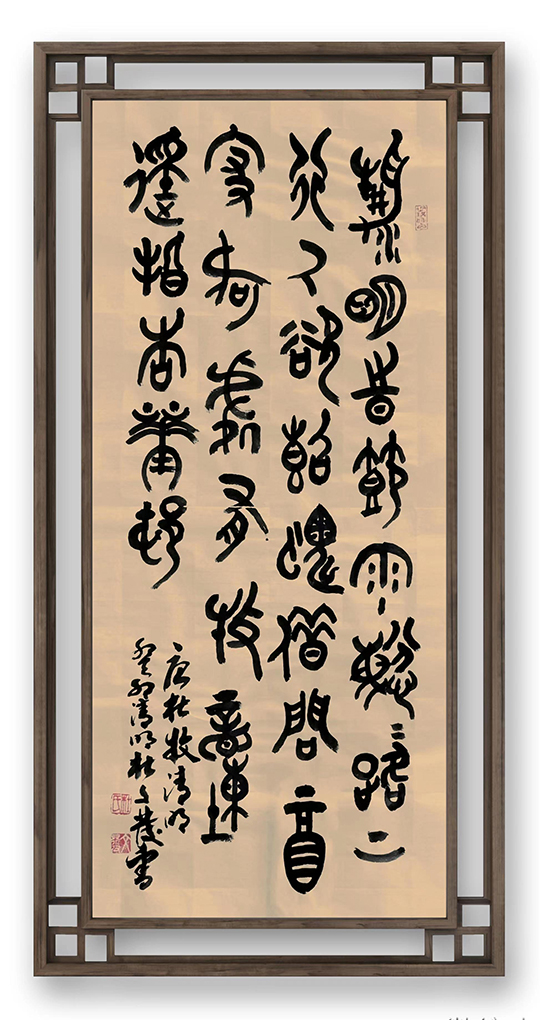 清明時節雨紛紛路上
行人欲斷魂借問酒
家何處有牧童
遙指杏花村
唐杜牧清明
癸卯清明杜文書